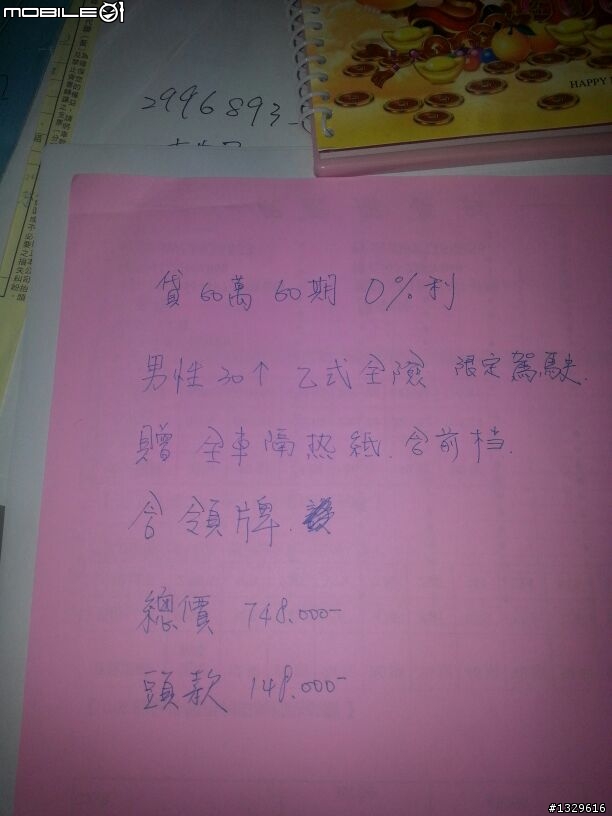 MOBILE01
2996893
HAPPY
貸60萬 60期 0%利
男性30↑ 乙式全險 限定駕駛.
贈 全車隔热紙. 含前档.
含 領牌.
總價 748.000-
頭款 148.000-
#1329616